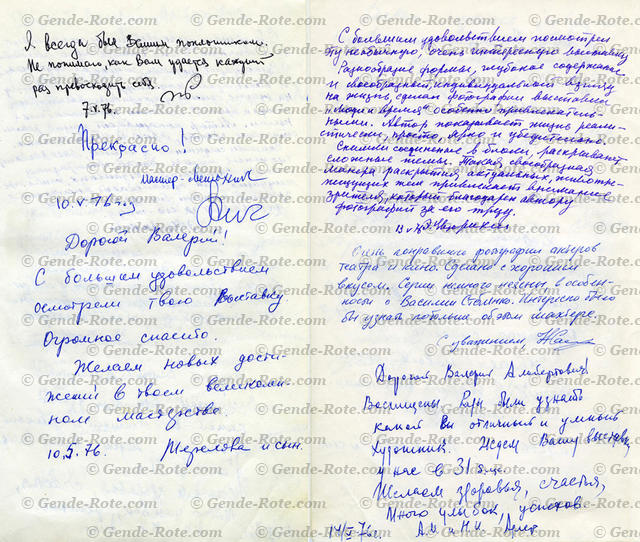 Я всегда был Вашим поклонником.
Не понимаю, как Вам удается каждый
раз превосходить себя.
7.V.76.
Прекрасно!
10.V-76
Дорогой Валерий!
С большим удовольствием
осмотрели твою выставку
Огромное спасибо.
Желаем новых дости-
жений в твоем великолеп-
ном мастерстве.
10.5.76. и сын.
С большим удовольствием посмотрел
эту необычную, очень интересную выставку
Разнообразие формы, глубокое содержание
и своеобразный индивидуальный взгляд
на жизнь сделал фотографии выставки
"Люди и время" особенно привлекатель-
ными. Автор показывает жизнь реали-
стически, просто, ярко и убедительно.
Снимки соединенные в блоки, раскрывают
сложные темы. Такая своеобразная
манера раскрытия актуальных, животре-
пещущих тем привлекает внимание
зрителя, который благодарен автору
фотографий за его труд.
Очень понравились фотографии актеров
театра и кино. Сделано с хорошим
вкусом. Серии много, в особен-
ности о Василии. Интересно было
бы узнать побольше об этом шахтере.
С уважением,
Дорогой Валерий Альбертович!
Восхищены, рады были узнать
какой Вы отличный и умный
художник. Ждем Вашу выставку
у нас в 31
Желаем здоровья, счастья,
много улыбок, успехов
14/V 76г. А.М. и Н.И.
© Gende-Rote.com